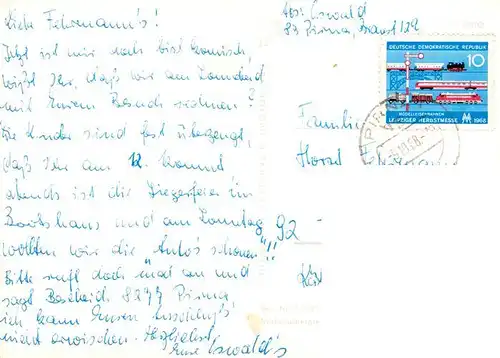 Liebe Fehrmann's!
Jetzt ist mir doch bisl komisch
wißt Ihr, daß wir am Sonnabend
mit Eurem Besuch rechnen?
Die Kinder sind fest überzeugt,
daß Ihr am 12. kommt
abends ist die Siegerfeier im
Bootshaus und am Sonntag
wollten wir die "Auto's schonen"!!
Bitte ruft doch mal an und
sagt Bescheid. 8277 Pirna,
ich kann Euren Anschluß
nicht erwischen. Herzlichst
Eure Oswald's
Abs. Oswald
83 Pirna,
DEUTSCHE DEMOKRATISCHE REPUBLIK
10
MODELLEISENBAHNEN
LEIPZIGER HERBSTMESSE 1968
Familie
Horst
92